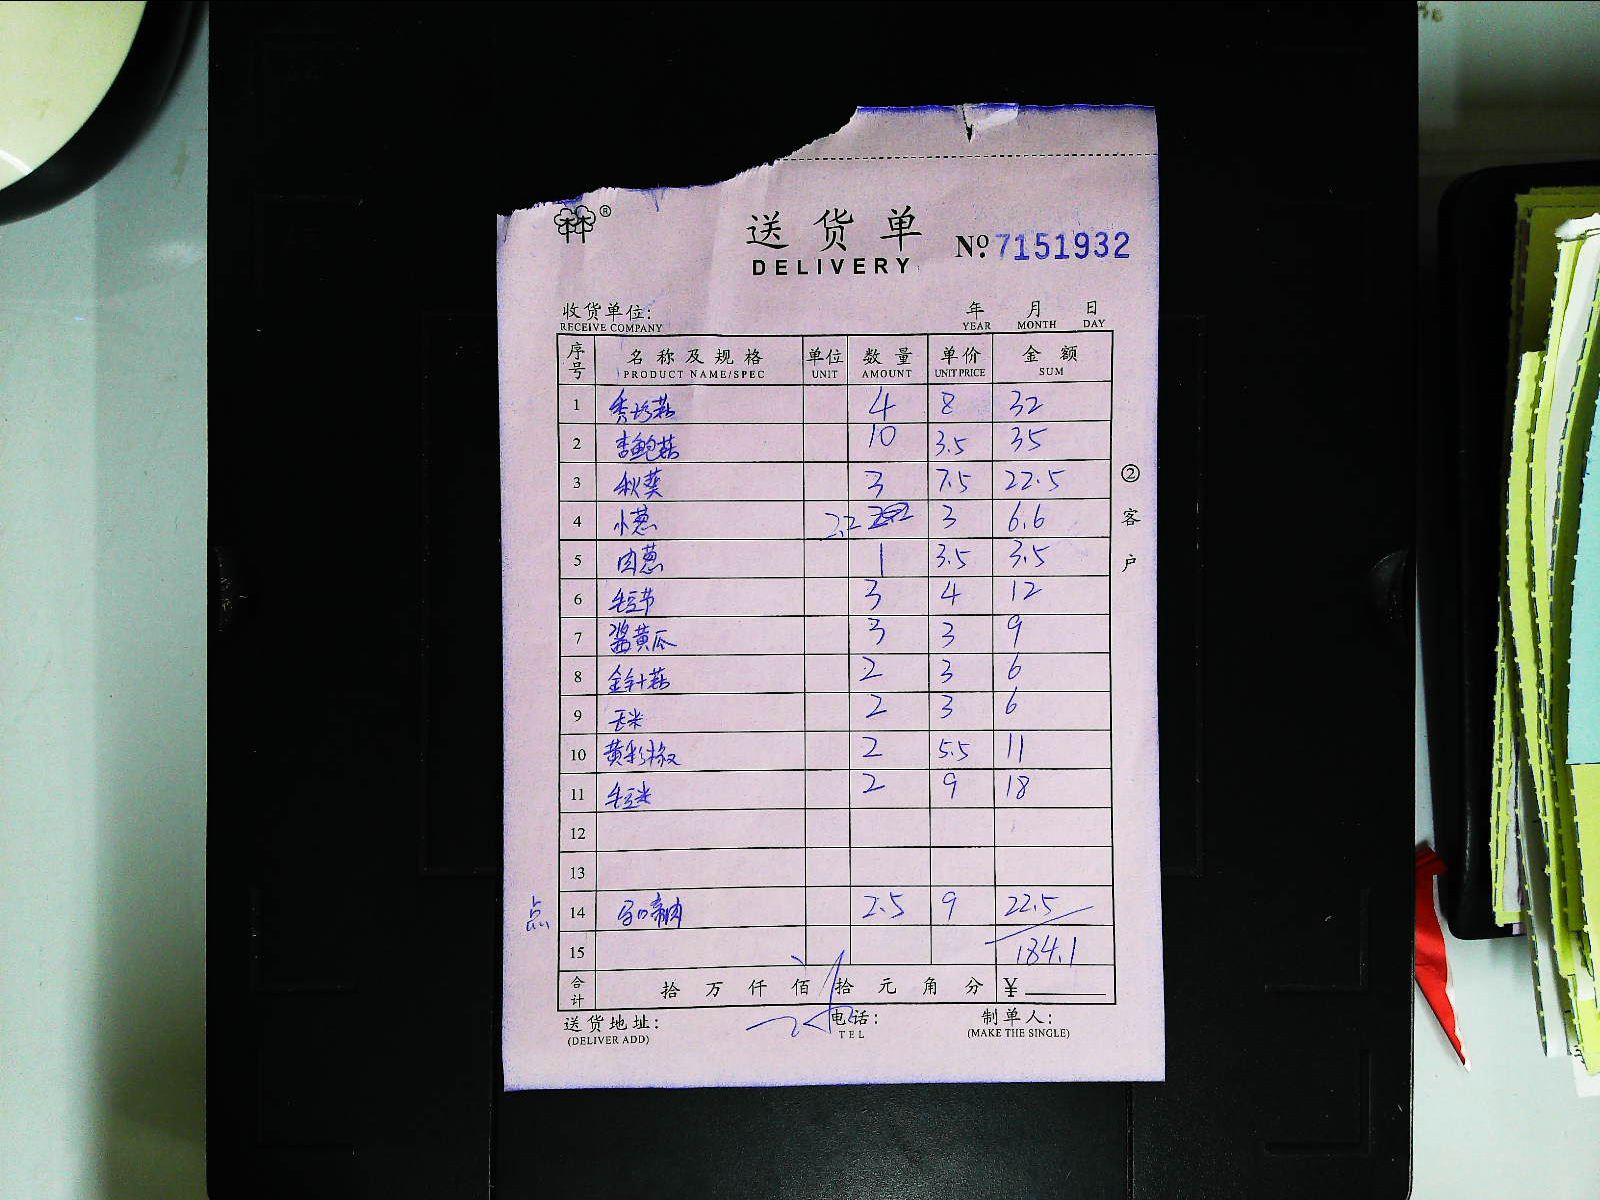 ®
送货单 No. 7151932
DELIVERY
收货单位: 年 月 日
RECEIVE COMPANY YEAR MONTH DAY
序号 名称及规格 单位 数量 单价 金额
PRODUCT NAME/SPEC UNIT AMOUNT UNIT PRICE SUM
1 秀珍菇 4 8 32
2 杏鲍菇 10 3.5 35
3 秋葵 3 7.5 22.5
4 小葱 2.2 3 6.6
5 肉葱 1 3.5 3.5
6 毛豆节 3 4 12
7 酱黄瓜 3 3 9
8 金针菇 2 3 6
9 玉米 2 3 6
10 黄彩椒 2 5.5 11
11 毛豆米 2 9 18
12
13
点 14 2.5 9 22.5
15 184.1
合计 拾 万 仟 佰 拾 元 角 分 ¥
送货地址: 电话: 制单人:
(DELIVER ADD) TEL (MAKE THE SINGLE)
②客户